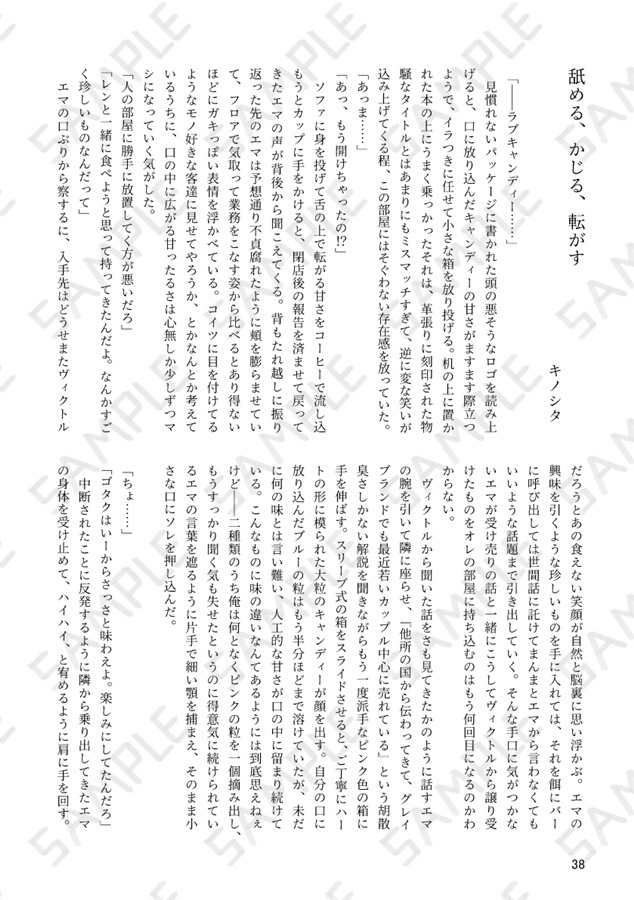 舐める、かじる、転がす
キノシタ
「――ラブキャンディー……」
見慣れないパッケージに書かれた頭の悪そうなロゴを読み上
げると、口に放り込んだキャンディーの甘さがますます際立つ
ようで、イラつきに任せて小さな箱を放り投げる。机の上に置か
れた本の上にうまく乗っかったそれは、革張りに刻印された物
騒なタイトルとはあまりにもミスマッチすぎて、逆に変な笑いが
込み上げてくる程、この部屋にはそぐわない存在感を放っていた。
「あっま……」
「あっ、もう開けちゃったの!?」
ソファに身を投げて舌の上で転がる甘さをコーヒーで流し込
もうとカップに手をかけると、閉店後の報告を済ませて戻って
きたエマの声が背後から聞こえてくる。背もたれ越しに振り
返った先のエマは予想通り不貞腐れたように頬を膨らませてい
て、フロアで気取って業務をこなす姿から比べるとあり得ない
ほどにガキっぽい表情を浮かべている。コイツに目を付けてる
ようなモノ好きな客達に見せてやろうか、とかなんとか考えて
いるうちに、口の中に広がる甘ったるさは心無しか少しずつマ
シになっていく気がした。
「人の部屋に勝手に放置してく方が悪いだろ」
「レンと一緒に食べようと思って持ってきたんだよ。なんかすご
く珍しいものなんだって」
エマの口ぶりから察するに、入手先はどうせまたヴィクトル
だろうとあの食えない笑顔が自然と脳裏に思い浮かぶ。エマの
興味を引くような珍しいものを手に入れては、それを餌にバー
に呼び出しては世間話に託けてまんまとエマから言わなくても
いいような話題まで引き出していく。そんな手口に気がつかな
いエマが受け売りの話と一緒にこうしてヴィクトルから譲り受
けたものをオレの部屋に持ち込むのはもう何回目になるのかわ
からない。
ヴィクトルから聞いた話をさも見てきたかのように話すエマ
の腕を引いて隣に座らせ、「他所の国から伝わってきて、グレイ
ブランドでも最近若いカップル中心に売れている」という胡散
臭さしかない解説を聞きながらもう一度派手なピンク色の箱に
手を伸ばす。スリーブ式の箱をスライドさせると、ご丁寧にハー
トの形に模られた大粒のキャンディーが顔を出す。自分の口に
放り込んだブルーの粒はもう半分ほどまで溶けていたが、未だ
に何の味とは言い難い、人工的な甘さが口の中に留まり続けて
いる。こんなものに味の違いなんてあるようには到底思えねぇ
けど――二種類のうち俺は何となくピンクの粒を一個摘み出し、
もうすっかり聞く気も失せたというのに得意気に続けられてい
るエマの言葉を遮るように片手で細い顎を捕まえ、そのまま小
さな口にソレを押し込んだ。
「ちょ……」
「ゴタクはいーからさっさと味わえよ。楽しみにしてたんだろ」
中断されたことに反発するように隣から乗り出してきたエマ
の身体を受け止めて、ハイハイ、と宥めるように肩に手を回す。
38
SAMPLE